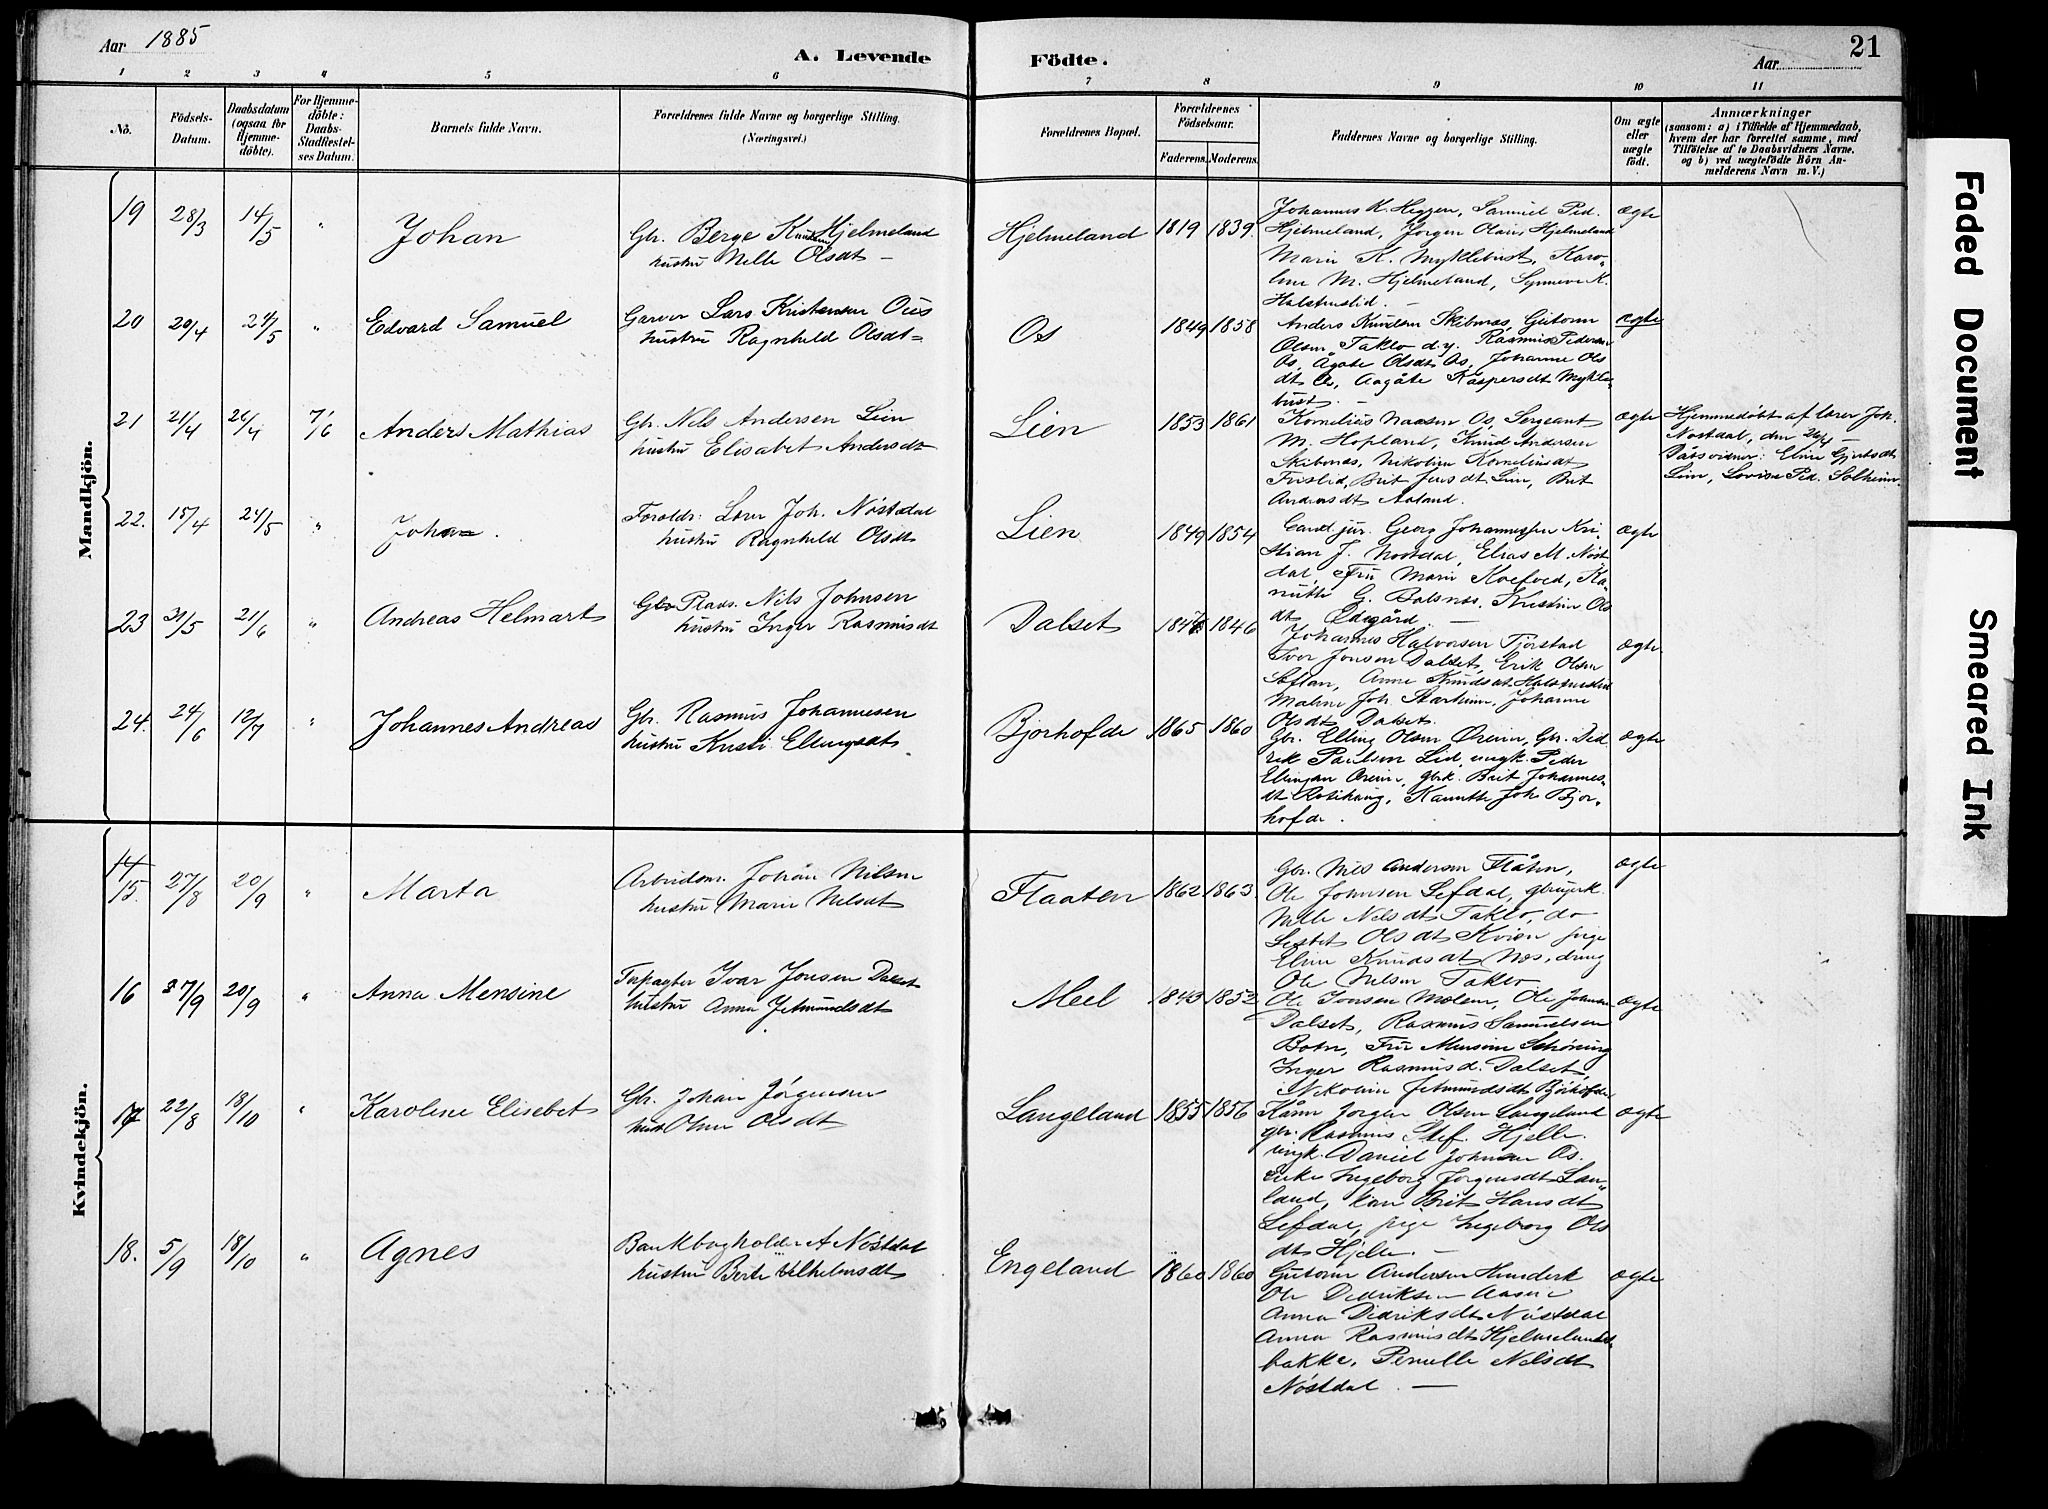 Aar 1885
A. Levende
Födte.
Aar
21
1 2 3 4 5 6 7 8 9 10 11
No.
Födsels-
Datum.
Daabsdatum
(ogsaa for
Hjemme-
döbte).
For Hjemme-
döbte:
Daabs-
Stadfæstel-
ses Datum.
Barnets fulde Navn.
Forældrenes fulde Navne og borgerlige Stilling.
(Næringsvei.)
Forældrenes Bopæl.
Forældrenes
Födselsaar.
Faderens. Moderens.
Faddernes Navne og borgerlige Stilling.
Om ægte
eller
uægte
födt.
Anmærkninger
(saasom: a) i Tilfælde af Hjemmedaab,
hvem der har forrettet samme, med
Tilföielse af to Daabsvidners Navne,
og b) ved uægtefödte Börn An-
melderens Navn m. V.)
Mandkjön.
19 28/3 14/5 " Johan
Gbr. Berge Knudsen Hjelmeland
hustru Nille Olsdt -
Hjelmeland 1819 1839
Johannes K. Heggen, Samuel Ped.
Hjelmeland, Jørgen Olaus Hjelmeland
Marie K. Myklebust, Karo-
line M. Hjelmeland, Synneve K.
Halstenslid. -
ægte
20 20/4 24/5 " Edvard Samuel
Garver Lars Kristensen Ous
hustru Ragnhild Olsdt
Os 1849 1858
Anders Knudsen Skibenæs, Guttorm
Olsen Taklo d.y. Rasmus Pedersen
Os, Agate Olsdt Os, Johanne Ols
dt Os, Aagåte Kaspersdt Mykle
bust. -
ægte
21 21/4 26/4 7/6 Anders Mathias
Gbr. Nils Andersen Lien
hustru Elisabet Andersdt
Lien 1853 1861
Kornelius Os, Sergeant
M. Hopland, Knud Andersen
Skibenæs, Nikoline Korneliusdt
Frislid, Brit Jensdt Lien, Brit
Andersdt Aaland.
ægte
Hjemmedøbt af lærer Joh.
Nøstdal, den 26/4 -
Dåbsvidner: Eline Gjertsdt
Lien, Lovise Ped. Solheim.
22. 15/4 24/5 " Johan.
Foreldr: Lærer Joh. Nøstdal
hustru Ragnhild Olsdt
Lien 1849 1854
Cand. jur. Georg Johannessen Kri-
stian J. Nøstdal, Elias M. Nøst
dal, Fru Marie Koefoed, Ka-
nutte G. Balsnes, Kristine Ols
dt Ødegård. -
ægte
23 31/5 21/6 " Andreas Helmart
Plads. Nils Johnsen
hustru Inger Rasmusdt
Dalset 1846
Johannes Halvorsen Tjørstad
Ivar Jonsen Dalset, Erik Olsen
Anne Knudsdt Halstenslid
Malene Joh. Starheim, Johanne
Olsdt Dalset.
ægte
24. 24/6 12/7 " Johannes Andreas
Gbr. Rasmus Johannesen
hustru Kristi Ellingsdt
Bjørhofde 1865 1860
Gbr. Elling Olsen Øreim, Gbr. Did
rik Paulsen Lid, ungk. Peder
Ellingsen Øreim, gbrk. Brit Johannes-
dt Kanutte Joh. Bjør-
hofde.
ægte
Kvindekjön.
14/15. 27/8 20/9 " Marta
Arbeidsm. Johan Nilsen
hustru Marie Nilsdt
Flaaten 1862 1863.
Gbr. Nils Andersen Flåten,
Ole Johnsen Sefdal,
Nille Nilsdt Taklo, do
Sestet Olsdt Kvien pige
Eline Knudsdt Næs, dreng
Ole Nilsen Taklo
ægte
16 27/9 20/9 " Anna Mensine
Forpagter Ivar Jonsen Dalset
hustru Anna Jetmundsdt
Meel 1843 1852
Ole Ivarsen Molein, Ole Johnsen
Dalset, Rasmus Samuelsen
Botn, Fru Mensine Schøning
Inger Rasmusd. Dalset,
Nikoline Jetmundsdt Bjørhofde
ægte
17 22/8 18/10 " Karoline Elisebet
Gbr. Johan Jørgensen
hust. Oline Olsdt
Langeland 1855 1856
Kårm Jørgen Olsen Langeland
gbr. Rasmus Stef. Hjelle.
ungk. Daniel Johnsen Os.
enke Ingeborg Jørgensdt Lan-
land, Brit Hansdt
Sefdal, pige Ingeborg Ols
dt Hjelle. -
ægte
18. 5/9 18/10 " Agnes
Bankbogholder A Nøstdal
hustru Berte Vilhelmsdt
Engeland 1860 1860
Guttorm Andersen Hunderk
Ole Didriksen Aasen
Anna Didriksdt Nøstdal
Anna Rasmusdt Hjelmelands-
bakke, Pernille Nilsdt
Nøstdal. -
ægte
Faded Document
Smeared Ink